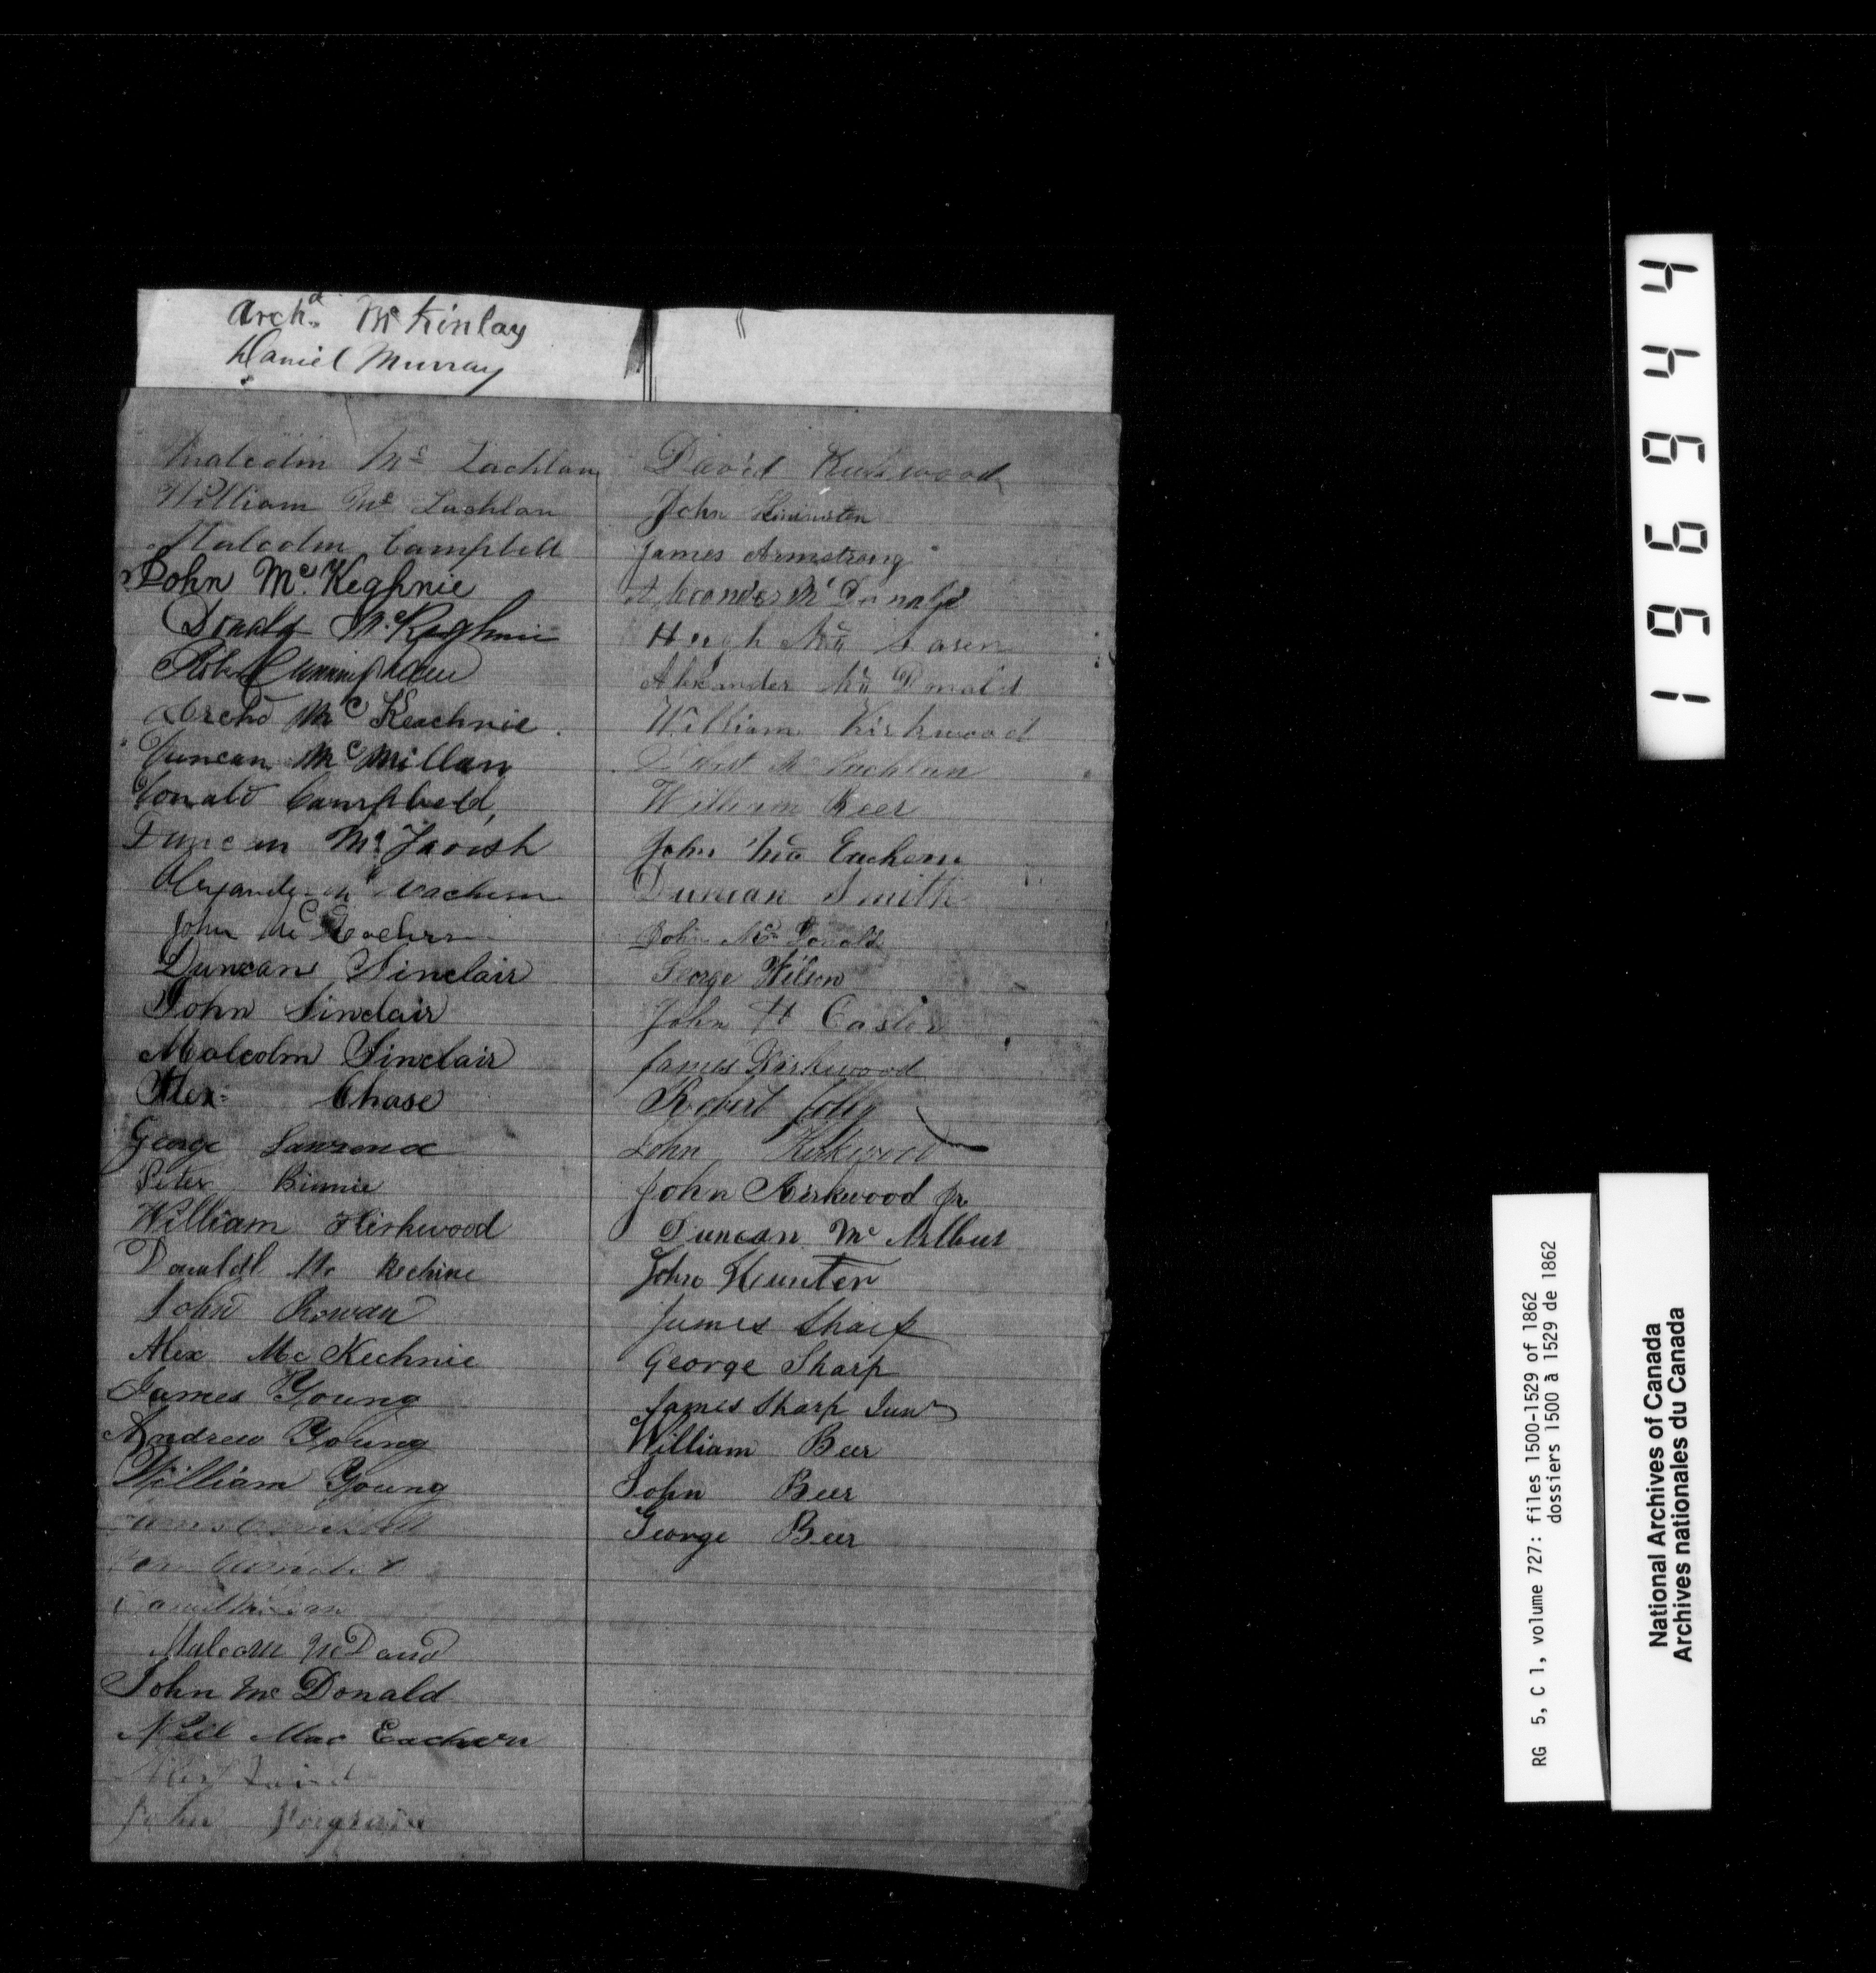 Archd. Mc Kinlay
Daniel Murray
Malcolm Mc Lachlan
William Mc Lachlan
Malcolm Campbell
John Mc. Keghnie
Donald Mc. Keghnie
Robert Cunningham
Archd Mc Keachnie
Duncan Mc Millan
Donald Campbell,
Duncan Mc Tavish
Alexander Mc Eachern
John Mc Eachern
Duncan Sinclair
John Sinclair
Malcolm Sinclair
Alex: Chase
George Lawrence
Peter Binnie
William Kirkwood
Donald Mc Kechine
John Rowan
Alex Mc Kechnie
James Young
Andrew Young
William Young
James Campbell
Malcolm
John Mc Donald
Neil Mac Eachern
John
David Kirkwood
John
James Armstrong
Alexander Mc Donald
Hugh Mc Laren
Alexander Mc Donald
William Kirkwood
Mc Lachlan
William Keer
John Mc Eachern
Duncan Smith
John Mc Donald
George Wilson
John H Casler
James Kirkwood
Robert
John Kirkwood
John Kirkwood Jr
Duncan Mc Arthur
John Hunter
James Sharp
George Sharp
James Sharp Junr
William Beer
John Beer
George Beer
196944
RG 5, C 1, volume 727: files 1500-1529 of 1862
dossiers 1500 à 1529 de 1862
National Archives of Canada
Archives nationales du Canada